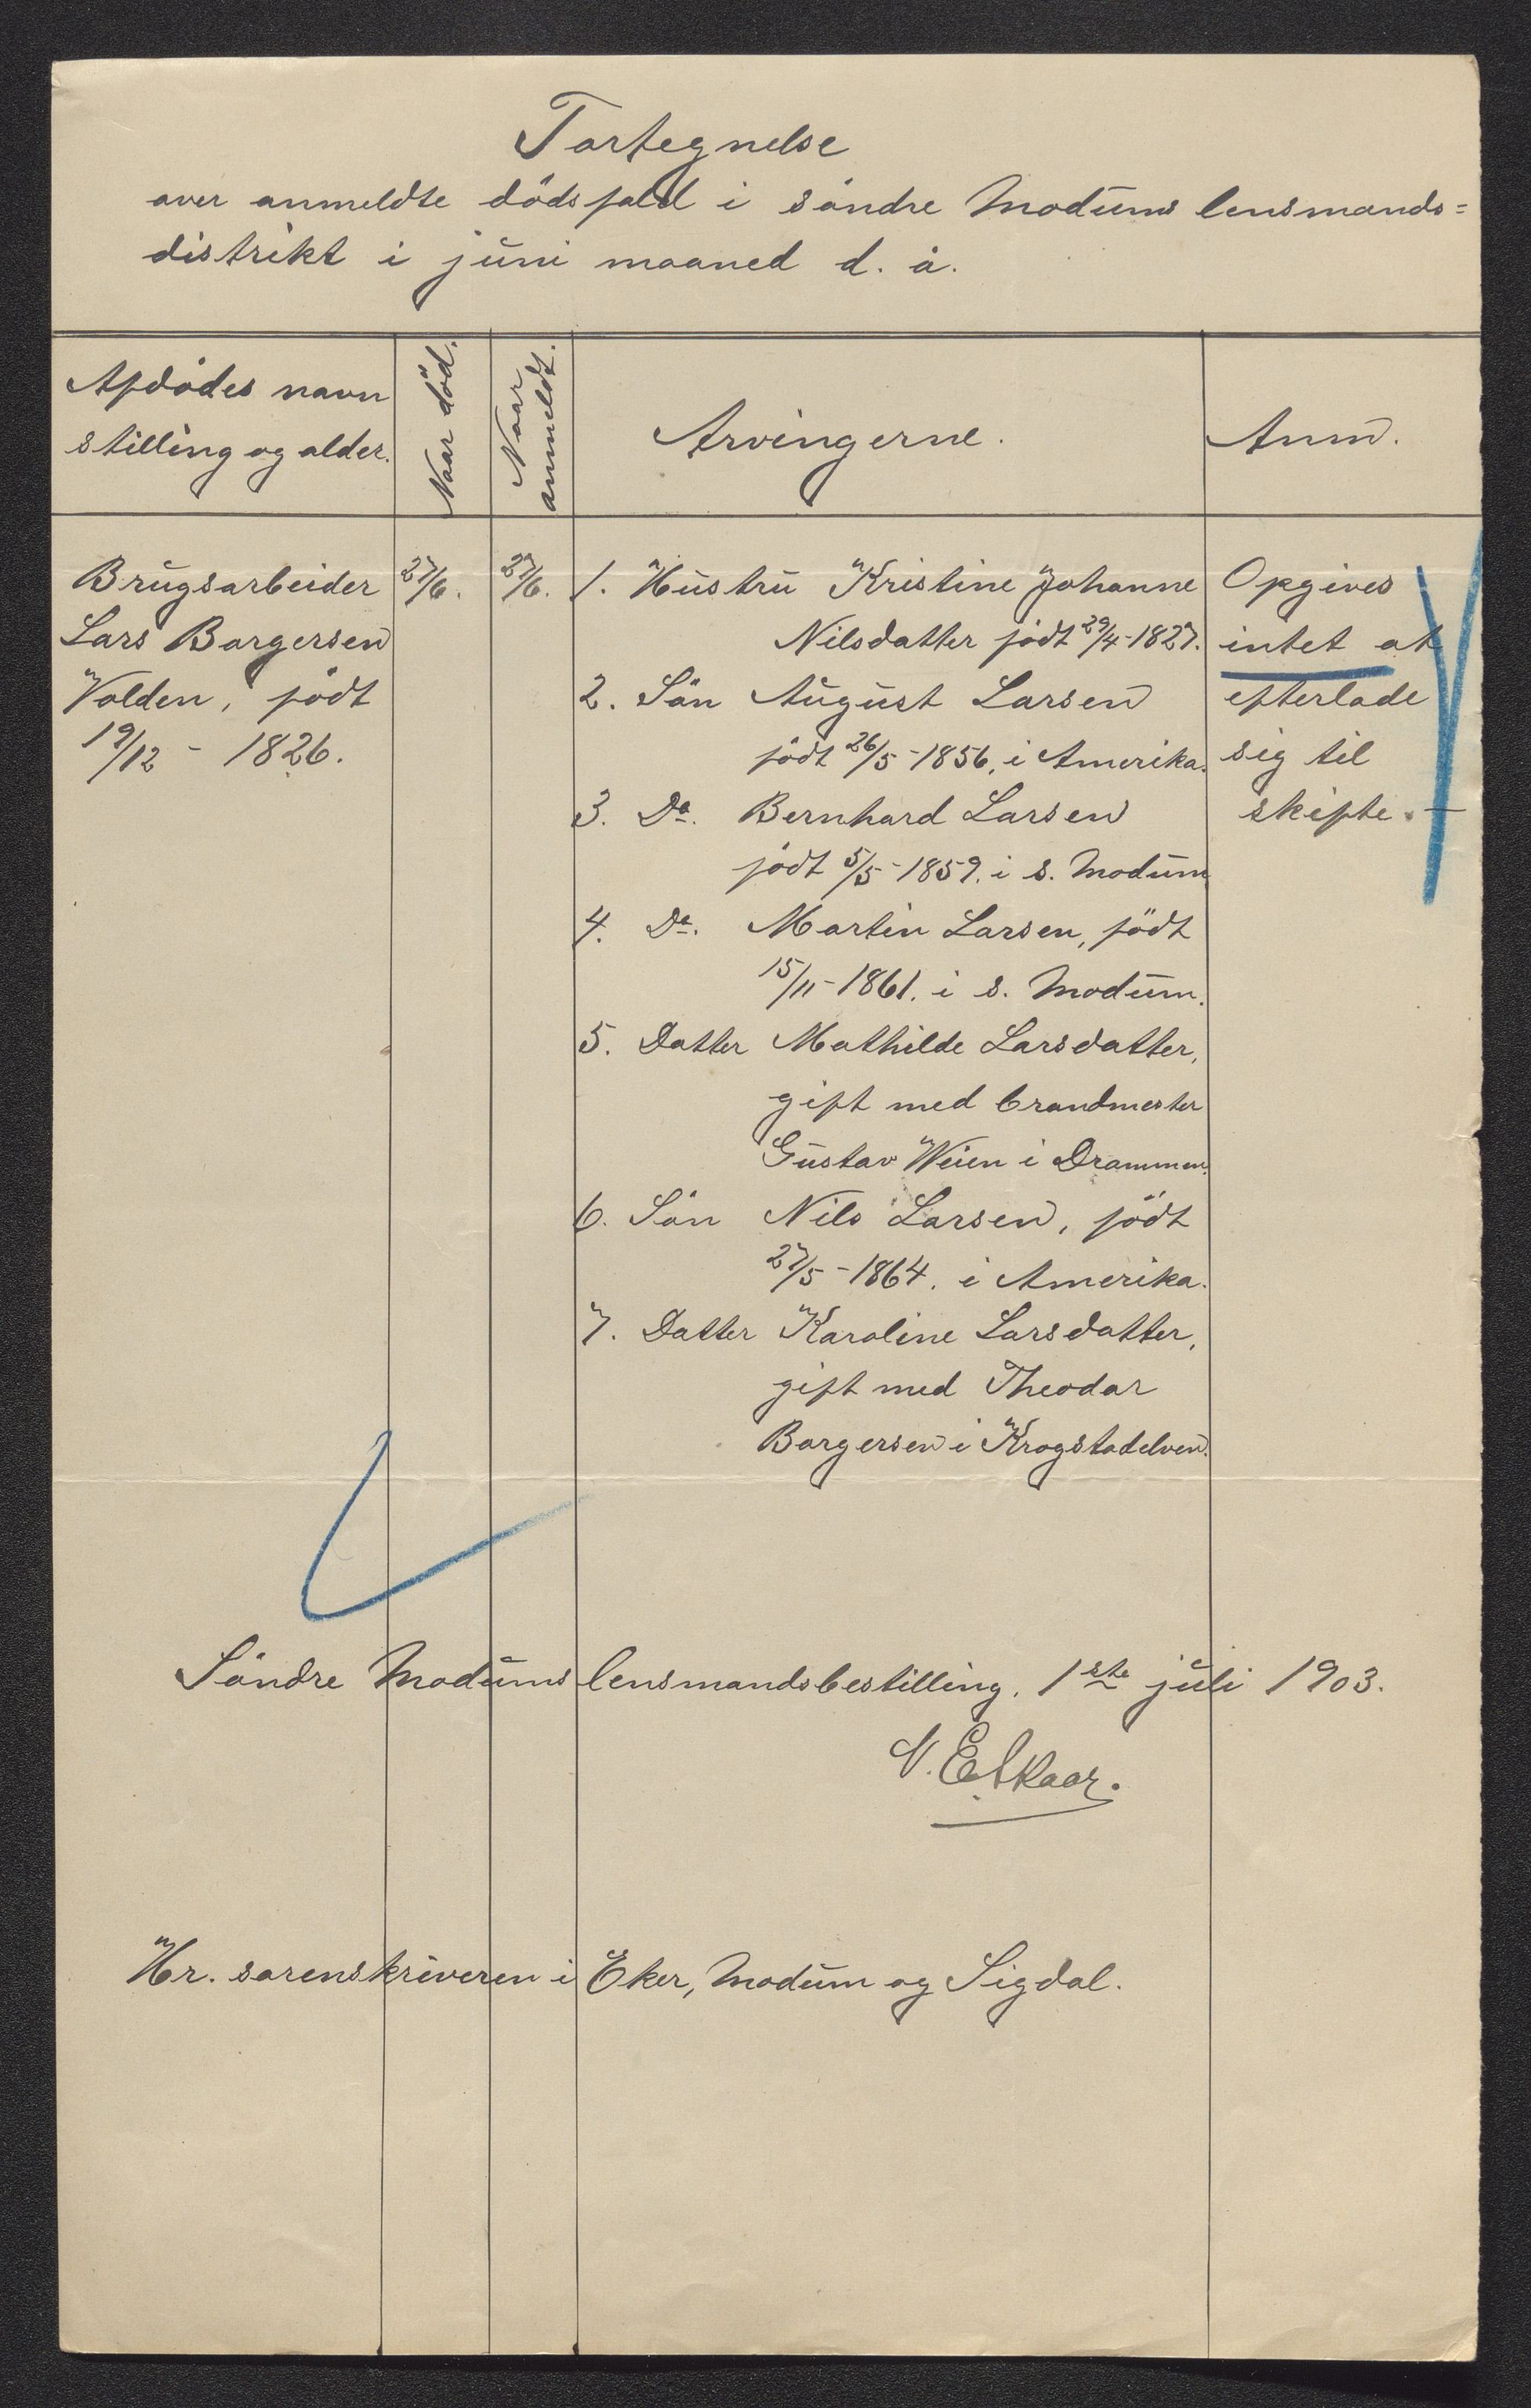 Fortegnelse
over anmeldte dödsfald i söndre Modums lensmands=
distrikt i juni maaned d. å.
Afdödes navn
stilling og alder.
Naar död.
Naar
anmeldt.
Arvingerne.
Anm.
Brugsarbeider
Lars Borgersen
Volden, født
19/12 - 1826.
27/6.
27/6.
1. Hustru Kristine Johanne
Nilsdatter født 29/4-1827.
2. Sön August Larsen
födt 26/5-1856, i Amerika.
3. Do. Bernhard Larsen
födt 5/5-1859. i s. Modum
4. Do. Martin Larsen, födt
15/11-1861. i s. Modum.
5. Datter Mathilde Larsdatter,
gift med brandmester
Gustav Weien i Drammen.
6. Sön Nils Larsen, födt
27/5-1864. i Amerika.
7. Datter Karoline Larsdatter,
gift med Theodor
Borgersen i Krogstadelven.
Opgives
intet at
efterlade
sig til
skifte.
Söndre Modums lensmandsbestilling, 1ste juli 1903.
N. E. Skaar.
Hr. sorenskriveren i Eker, Modum og Sigdal.